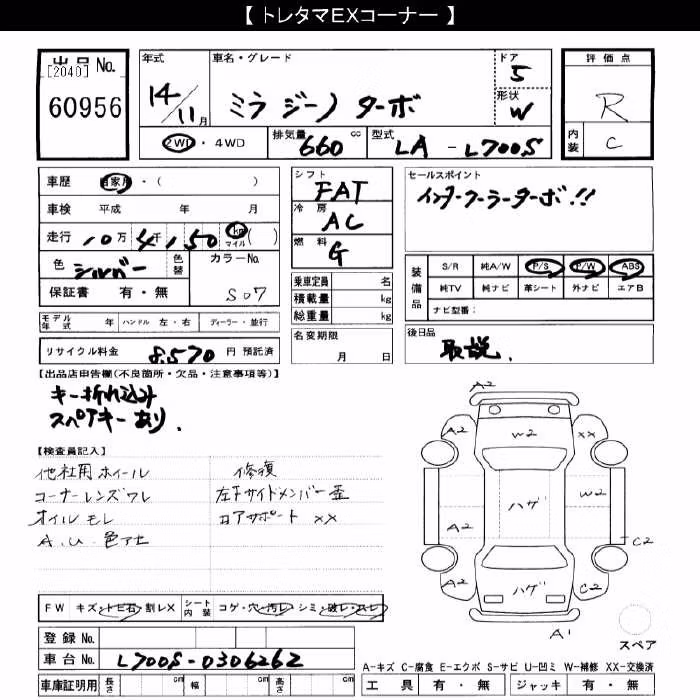 【 トレタマEXコーナー 】
出品 No.
[2040]
60956
年式 車名・グレード ドア 評価点
14/11月 ミラ ジーノ ターボ 5 R
形状 W
2WD・4WD 排気量 660 cc 型式 LA - L700S 内装 C
車歴 自家用・( ) シフト FAT セールスポイント
車検 平成 年 月 冷房 AC インタークーラーターボ!!
走行 10万4千150 km マイル ( ) 燃料 G
色 シルバー 色替 カラーNo. S07
保証書 有・無
乗車定員 名
積載量 kg
総重量 kg
装備品 S/R 純A/W P/S P/W ABS
純TV 純ナビ 革シート 外ナビ エアB
ナビ型番:
モデル年式 年 ハンドル 左・右 ディーラー・並行
名変期限 月 日
後日品 取説.
リサイクル料金 8,570 円 預託済
【出品店申告欄(不良箇所・欠品・注意事項等)】
キー折れ込み
スペアキーあり.
【検査員記入】
他社用ホイール 修復
コーナーレンズワレ 左F サイドメンバー歪
オイルモレ コアサポート XX
A.U.色アセ
A2
A2 W2 XX
ハゲ W2
A2 C2
A2 ハゲ C2
A1
スペア
FW キズ・トビ石・割レX シート内装 コゲ・穴・汚レ・シミ・破レ・スレ
登録 No.
車台 No. L700S-0306262
A-キズ C-腐食 E-エクボ S-サビ U-凹ミ W-補修 XX-交換済
車庫証明用 長さ cm 幅 cm 高さ cm 工具 有・無 ジャッキ 有・無